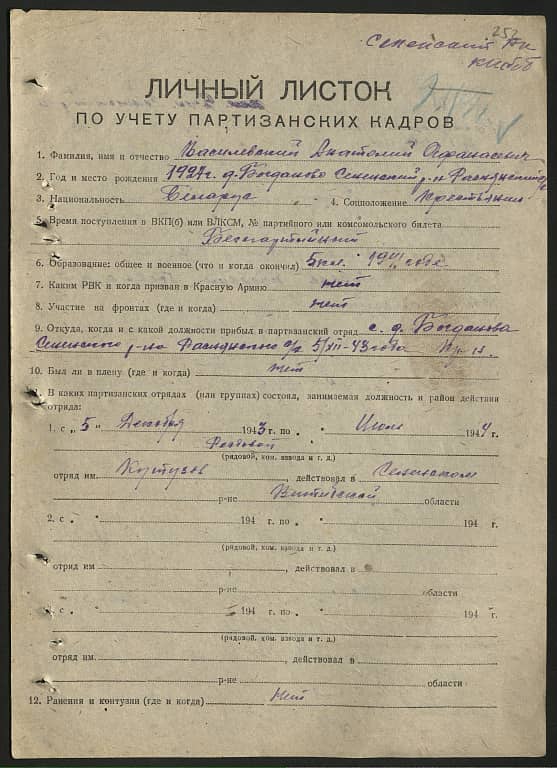 252
Сенненский
ЛИЧНЫЙ ЛИСТОК
ПО УЧЕТУ ПАРТИЗАНСКИХ КАДРОВ
1. Фамилия, имя и отчество Василевский Анатолий Афанасьевич
2. Год и место рождения д. Богданово Сененский р-н
3. Национальность Беларус 4. Соцположение Крестьянин
5. Время поступления в ВКП(б) или ВЛКСМ, № партийного или комсомольского билета
Беспартийный
6. Образование: общее и военное (что и когда окончил) 5 кл. 1941 году
7. Каким РВК и когда призван в Красную Армию нет
8. Участие на фронтах (где и когда) нет
9. Откуда, когда и с какой должности прибыл в партизанский отряд с. д. Богданова
Сененского р-на 5/XII-43 года
10. Был ли в плену (где и когда) нет
11. В каких партизанских отрядах (или группах) состоял, занимаемая должность и район действия
отряда:
1. с „ 5 „ Декабря 1943 г. по „ „ Июль 1944 г.
Рядовой
(рядовой, ком. взвода и т. д.)
отряд им. Кутузов, действовал в Сененском
р-не Витебской области
2. с „ „ 194 г. по „ „ 194 г.
(рядовой, ком. взвода и т. д.)
отряд им. , действовал в
р-не области
3. с „ „ 194 г. по „ „ 194 г.
(рядовой, ком. взвода и т. д.)
отряд им. , действовал в
р-не области
12. Ранения и контузии (где и когда) нет